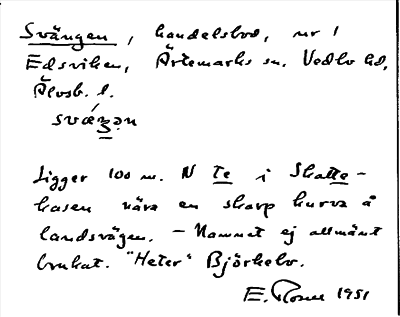 Svängen, handelsbod, nr 1
Edsviken, Ärtemarks sn. Vedbo hd,
Älvsb. l.
svǽŋ̲ən
Ligger 100 m. N Te i Skatte-
kasen nära en skarp kurva å
landsvägen. – Namnet ej allmänt
brukat. "Heter" Björkelv.
E. Rosell 1951